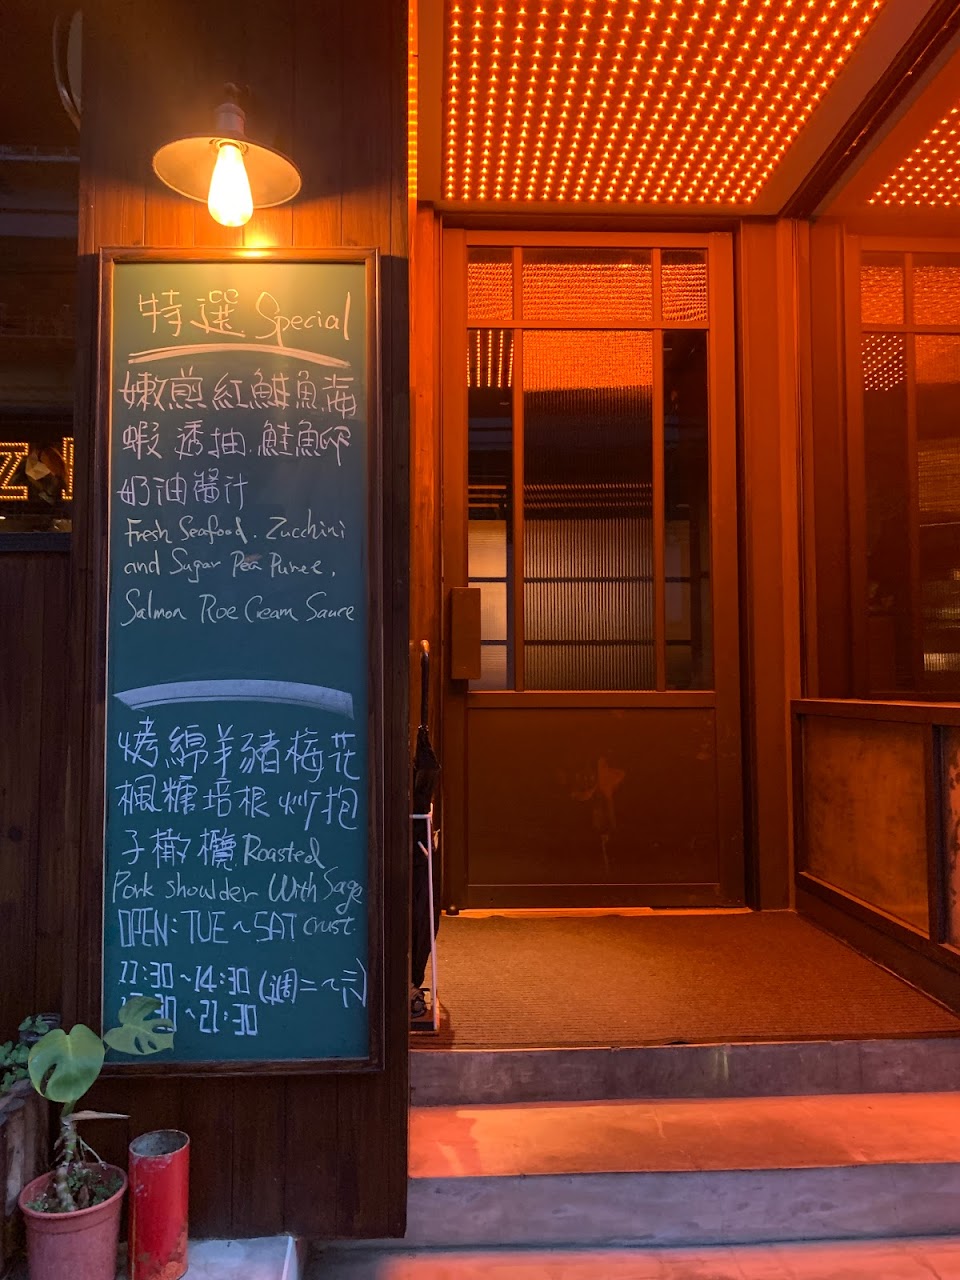 特選 Special
嫩煎紅鮭魚海
蝦透抽.鮭魚卵
奶油醬汁
Fresh Seafood. Zucchini
and Sugar Pea Puree,
Salmon Roe Cream Sauce
烤綿羊豬梅花
楓糖培根炒抱
子橄欖 Roasted
Pork shoulder With Sage
OPEN: TUE ~ SAT crust.
11:30 ~ 14:30 (週二~六)
:30 ~ 21:30
Z